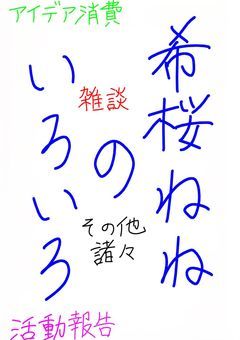 アイデア消費
希桜ねね
の
いろいろ
雑談
その他
諸々
活動報告